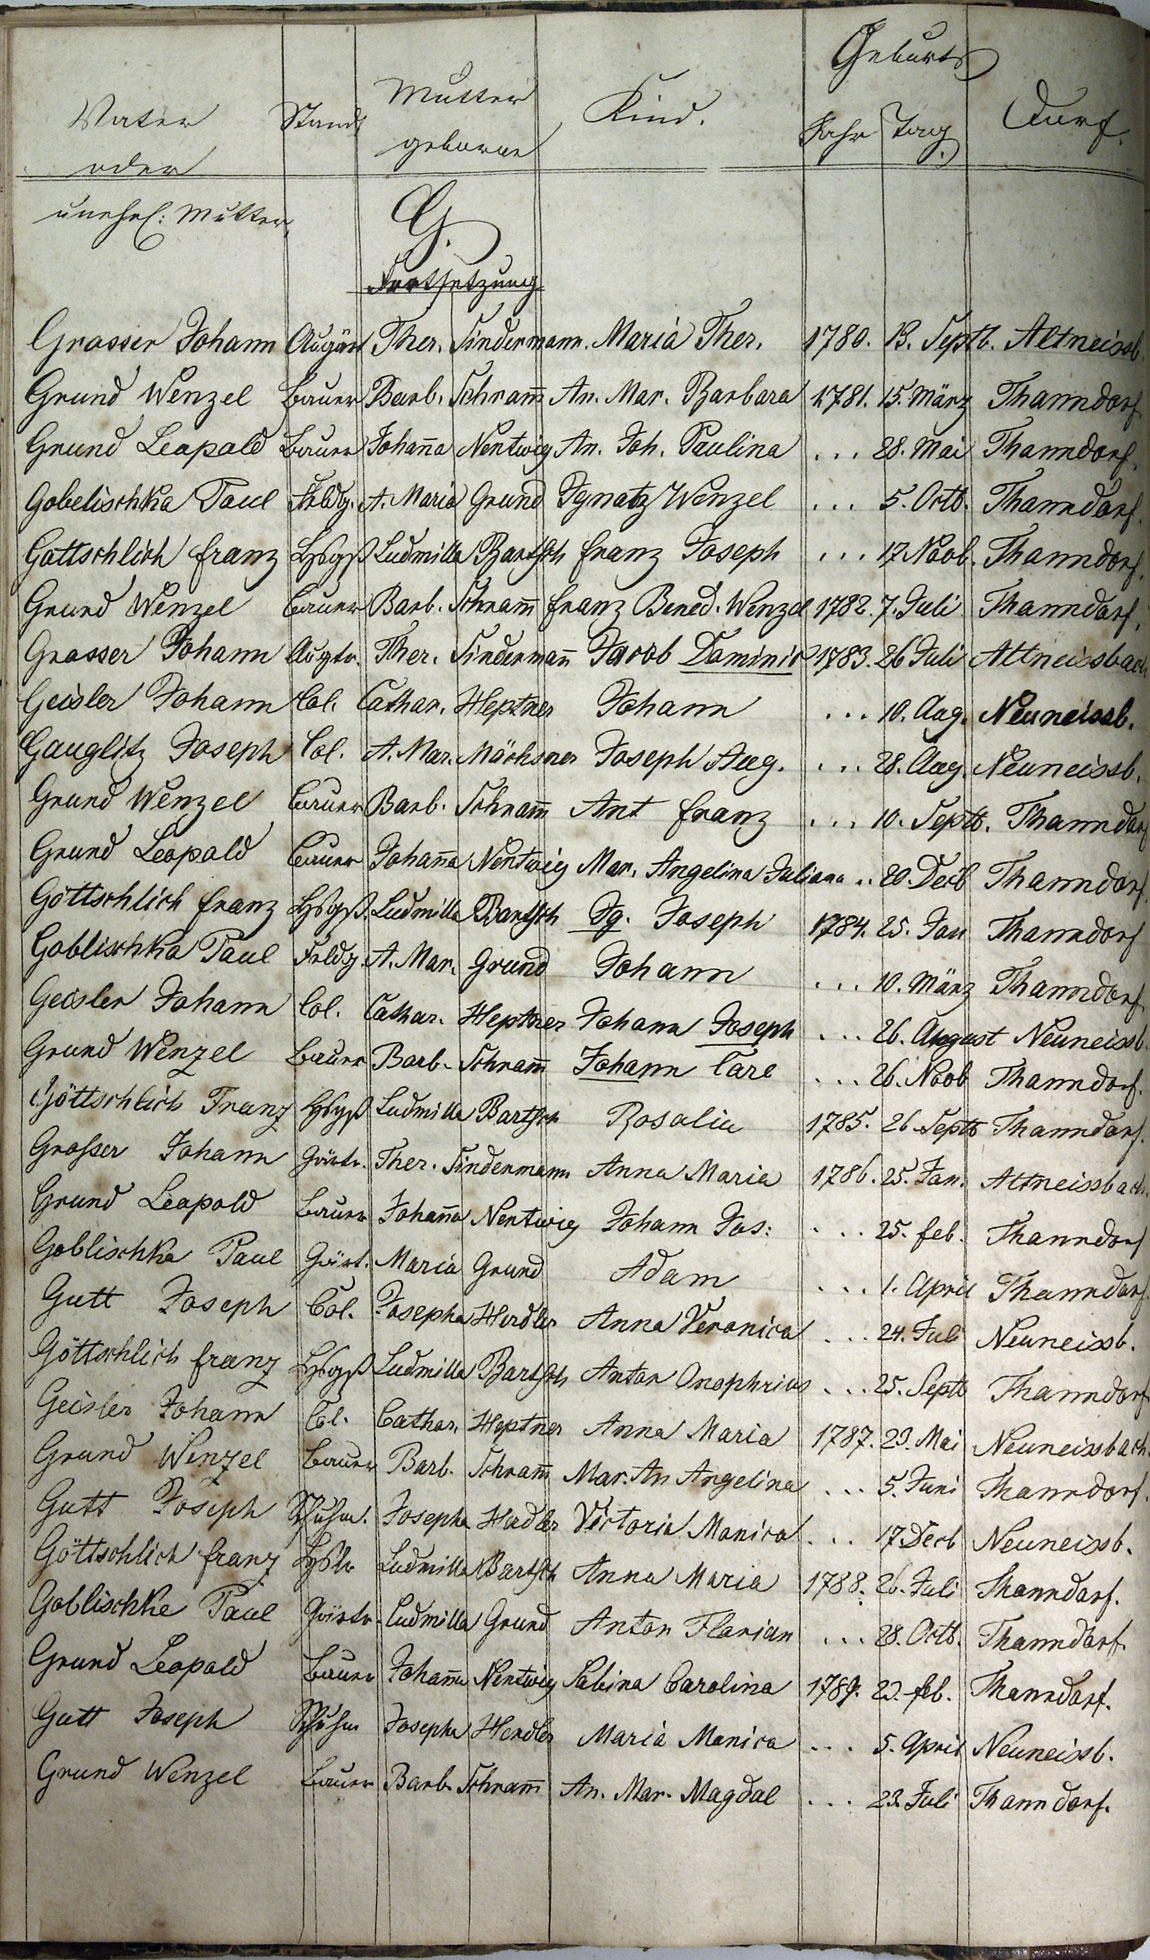 Geburts
Vater Stand Mutter Kind. Jahr Tag. Dorf.
oder geborne
unehel: Mutter,
G.
Fortsetzung
Grosser Johann Ther. Sindermann. Maria Ther. 1780. 13. Septb. Altneissb.
Grund Wenzel Bauer Barb. Schram̄ An. Mar. Barbara 1781. 15. März Thanndorf.
Grund Leopold Bauer Johan̄a Nentwig An. Joh. Paulina ... 28. Mai Thanndorf.
Gobelischka Paul Feldg. A. Maria Grund Ignatz Wenzel ... 5. Octb. Thanndorf.
Gottschlich Franz Ludmilla Bartsch Franz Joseph ... 17. Novb. Thanndorf.
Grund Wenzel Bauer Barb. Schram̄ Franz Bened. Wenzel 1782. 7. Juli Thanndorf.
Grosser Johann Augtr. Ther. Sinderman̄ Jacob Dominic 1783. 26 Juli Altneissbach
Geisler Johann Col. Cathar. Heptner Johann ... 10. Aug. Neuneissb.
Gauglitz Joseph Col. A. Mar. Mächsner Joseph Aug. ... 28. Aug. Neuneissb.
Grund Wenzel Bauer Barb. Schram̄ Ant Franz ... 10. Septb. Thanndorf
Grund Leopold Bauer Johan̄a Nentwig Mar. Angelina Juliana .. 20. Decb Thanndorf.
Göttschlich Franz Ludmilla Bartsch Ig. Joseph 1784. 25. Jan Thanndorf
Goblischka Paul Feldg. A. Mar. Grund Johann ... 10. März Thanndorf
Geisler Johann Col. Cathar. Heptner Johann Joseph ... 26. August Neuneissb.
Grund Wenzel Bauer Barb. Schram̄ Johann Carl ... 26. Novb Thanndorf.
Göttschlich Franz Ludmilla Bartsch Rosalia 1785. 26. Septb Thanndorf.
Großer Johann Gärtr. Ther. Sindermann Anna Maria 1786. 25. Jan. Altneissbach.
Grund Leopold Bauer Johan̄a Nentwig Johann Jos: ... 25. Feb. Thanndorf
Goblischka Paul Gärt. Maria Grund Adam ... 1. April Thanndorf.
Gutt Joseph Col. Josepha Herdler Anna Veronica ... 24. Juli Neuneissb.
Göttschlich Franz Ludmilla Bartsch Anton Onophrius ... 25. Septb Thanndorf
Geisler Johann Col. Cathar. Heptner Anna Maria 1787. 23. Mai Neuneissbach.
Grund Wenzel Bauer Barb. Schram̄ Mar. An Angelina ... 5. Juni Thanndorf.
Gutt Joseph Schuhm. Josepha Herdler Victoria Monica ... 17. Decb Neuneissb.
Göttschlich Franz Ludmilla Bartsch Anna Maria 1788. 26. Juli Thanndorf.
Goblischke Paul Gärtr. Ludmilla Grund Anton Florian ... 28. Octb. Thanndorf.
Grund Leopold Bauer Johan̄a Nentwig Sabina Carolina 1789. 23. Feb. Thanndorf.
Gutt Joseph Schuhm Josepha Herdler Maria Monica ... 5. April Neuneissb.
Grund Wenzel Bauer Barb. Schram̄ An. Mar. Magdal ... 23. Juli Thanndorf.